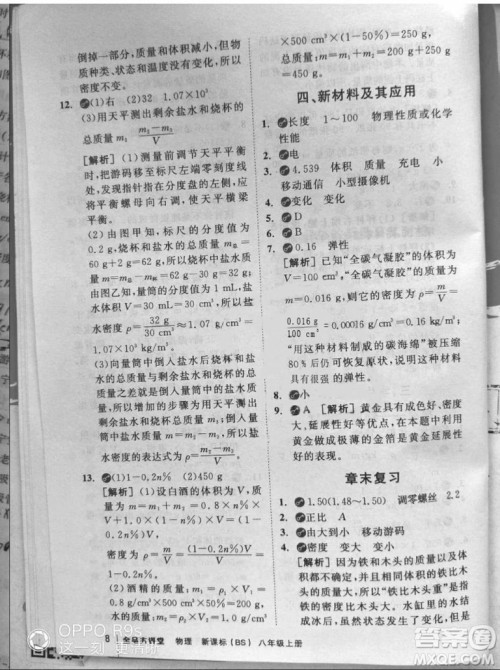 倒掉一部分,质量和体积减小,但物
质种类、状态和温度没有变化,所以
密度不变。
12. (1)右 (2)32 1.07×10³
(3)用天平测出剩余盐水和烧杯的
总质量 m₂ (m₁-m₂)/V
[解析] (1)测量前调节天平平衡
时,把游码移至标尺左端零刻度线
处,发现指针在分度盘的左侧,应
将平衡螺母向右调,使天平横梁
平衡。
(2)由图甲知,标尺的分度值为
0.2 g,烧杯和盐水的总质量 m总=
60 g+2 g=62 g,所以烧杯中盐水的质
量 m=m总-m杯=62 g-30 g=32 g;
由图乙知,量筒的分度值为1 mL,盐
水体积 V=30 mL=30 cm³,所以盐
水密度 ρ=32 g/30 cm³≈1.07 g/cm³=
1.07×10³ kg/m³。
(3)向量筒中倒入盐水后烧杯和盐
水的总质量与剩余烧杯和盐水的总
质量之差就是倒入量筒中的盐水质
量,所以增加的步骤为用天平测出
剩余盐水和烧杯的总质量 m₂;倒入
量筒中盐水质量 m=m₁-m₂,则盐
水密度的表达式为 ρ=(m₁-m₂)/V。
13. (1)1-0.2n% (2)450 g
[解析] (1)设白酒的体积为 V,质
量为 m=m₁+m₂=0.8×n%
×V+1.0×(1-n%)×V=(1-
0.2n%)V
因此密度为 ρ=m/V=(1-0.2n%)V/V=
1-0.2n%。
(2)酒精的质量,m₁=ρ₁×V₁=
0.8 g/cm³×500 cm³×50%=200 g
×500 cm³×(1-50%)=250 g,
总质量:m=m₁+m₂=200 g+250 g
=450 g。
四、新材料及其应用
1. 长度 1~100 物理性质或化学
性能
2. 电
3. 4.539 体积 质量 充电 小
移动通信 小型摄像机
4. 变化 变化
5. D
6. B
7. 0.16 弹性
[解析] 已知“全碳气凝胶”的体积为
V=100 cm³,“全碳气凝胶”的质量为
m=0.016 g,则它的密度为 ρ=m/V=
0.016 g/100 cm³=0.00016 g/cm³=0.16 kg/m³;
“用这种材料制成的碳海绵”被压缩
80%后仍可恢复原状,说明这种材料
具有很强的弹性。
8. 小
9. A [解析] 黄金具有成色好、密度
大、延展性好等优点,在本题中利用
黄金做成极薄的金箔是黄金延展性
好。
章末复习
1. 1.50(1.48~1.50) 调零螺丝 2.2
2. 正比 A
3. 由大到小 移动游码
4. 密度 变大 变小
[解析] 因为铁和木头的密度不
同,因此体积相同的铁和木头的质
量不同,因此人们觉得“铁比木头
重”,其中的“重”是指铁的密度比
木头的密度大。水缸里的水结
8 全品大讲堂 物理 新课标(BS) 八年级上册
OPPO R9s